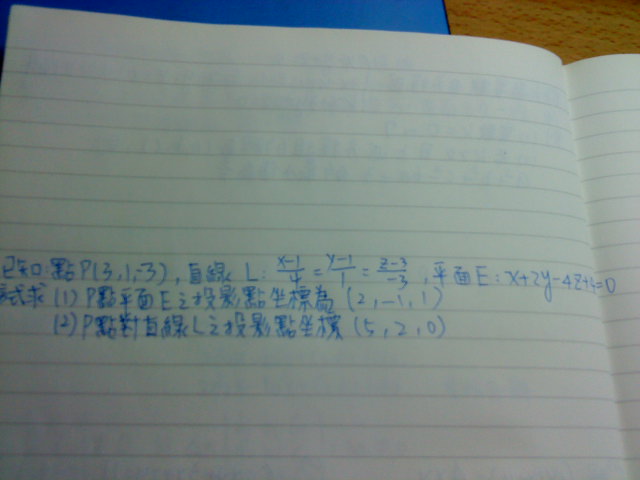 已知:點P(3,1,-3),直線 L: \frac{x-1}{4}=\frac{y-1}{1}=\frac{z-3}{-3},平面E:x+2y-4z+4=0
試求 (1) P點平面E之投影點坐標為 (2,-1,1)
(2) P點對直線L之投影點坐標 (5,2,0)